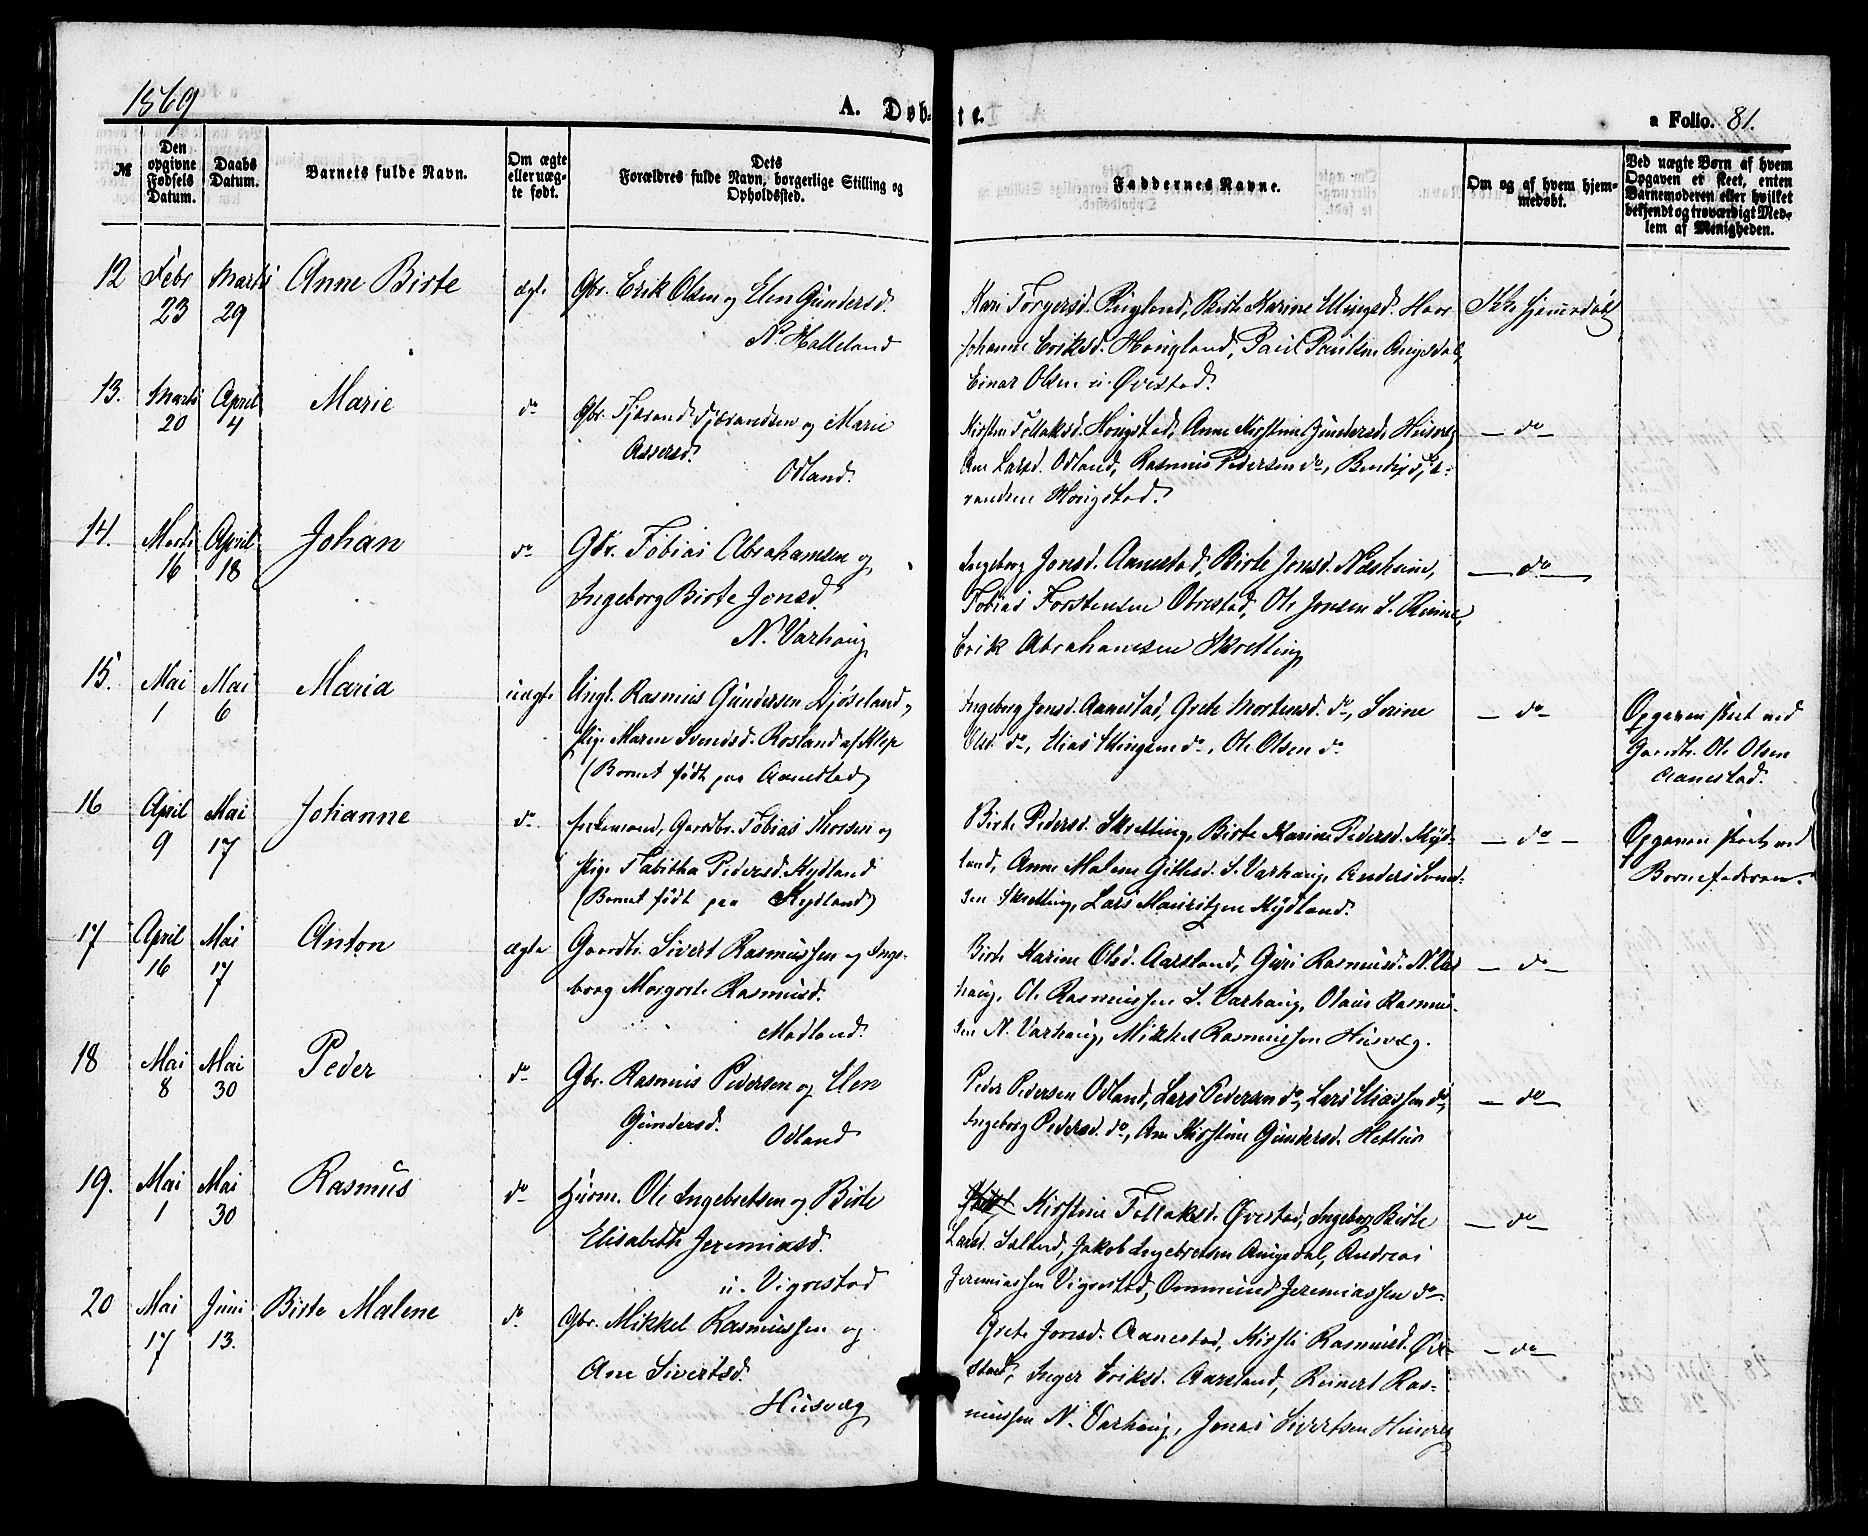 1869
A. Døbte.
a Folio. 81.
№
Den opgivne Fødsels Datum.
Daabs Datum.
Barnets fulde Navn.
Om ægte eller uægte født.
Dets Forældres fulde Navn, borgerlige Stilling og Opholdssted.
Faddernes Navne.
Om og af hvem hjemmedøbt.
Ved uægte Børn af hvem Opgaven er skeet, enten Barnemoderen eller hvilket bekjendt og troværdigt Medlem af Menigheden.
12 Febr 23 Martii 29 Anne Birte ægte
Gbr. Erik Olsen og Elen Gundersd.
N. Halleland
Mari Torgersd. Ringland, Berte Karine
Johanne Eriksd. Hougland, Paul Paulsen
Einar Olsen u. Øvestad.
Ikke hjemmedøbt
13. Martii 20 April 4 Marie do
Gbr. og Marie
Assersd.
Odland.
Kirsten Tollaksd. Hougstad, Anne Kirstine Gundersd. Husveg
Ane Larsd. Odland, Rasmus Pedersen do,
Hougstad.
— do —
14. Marti 16 April 18 Johan do
Gbr. Tobias Abrahamsen og
Ingeborg Birte Jonsd.
N. Varhoug
Ingeborg Jonsd. Aanestad, Birte Jonsd. Nesheim,
Tobias Torstensen Obrestad, Ole Jonsen S. Reime,
Erik Abrahamsen Skretting
— do —
15. Mai 1 Mai 6 Maria uægte
Ungk. Rasmus Gundersen og
Pige Maren Svendsd. Rosland af Klep
(Barnet født paa Aanestad)
Ingeborg Jonsd. Aanestad, Grete Mortensd. do, Serine
Olsd. do, Elias do, Ole Olsen do
— do —
Opgaven skeet ved
Gaardbr. Ole Olsen
Aanestad.
16 April 9 Mai 17 Johanne do
Enkemand, Gaardbr. Tobias Thorsen og
Pige Tabitha Pedersd. Kydland
(Barnet født paa Kydland)
Birte Pedersd. Skretting, Birte Karine Pedersd. Kyd-
land, Anne Malene Gitlesd. S. Varhaug, Anders Svend-
sen Skretting, Lars Mauritzen Kydland.
— do —
Opgaven skeet ved
Barnefaderen.
17 April 16 Mai 17 Anton ægte
Gaardbr. Sivert Rasmussen og Inge-
borg Margrete Rasmusd.
Madland.
Birte Karine Olsd. Aarsland, Guri Rasmusd. N. Var
haug, Ole Rasmussen S. Varhaug, Olaus Rasmus-
sen N. Varhaug, Mikkel Rasmussen Husveg.
— do —
18 Mai 8 Mai 30 Peder do
Gbr. Rasmus Pedersen og Elen
Gundersd.
Odland
Peder Pedersen Odland, Lars Pedersen do, Lars Eliassen do,
Ingeborg Pedersd. do, Ane Kirstine Gundersd. Hetlus
— do —
19. Mai 1 Mai 30 Rasmus do
Husm. Ole Ingebretsen og Birte
Elisabeth Jeremiasd.
u. Vigrestad
Kirstine Tollaksd. Øvestad, Ingeborg Birte
Larsd. Salend, Jakob Ingebretsen Augedal, Andreas
Jeremiassen Vigrestad, Ommund Jeremiassen do
— do —
20 Mai 17 Juni 13. Birte Malene do
Gbr. Mikkel Rasmussen og
Ane Sivertsd.
Husveg
Grete Jonsd. Aanestad, Kirsti Rasmusd. Øve-
stad, Inger Eriksd. Aarsland, Reinert Ras-
mussen N. Varhaug, Jonas Sivertsen Husveg
— do —